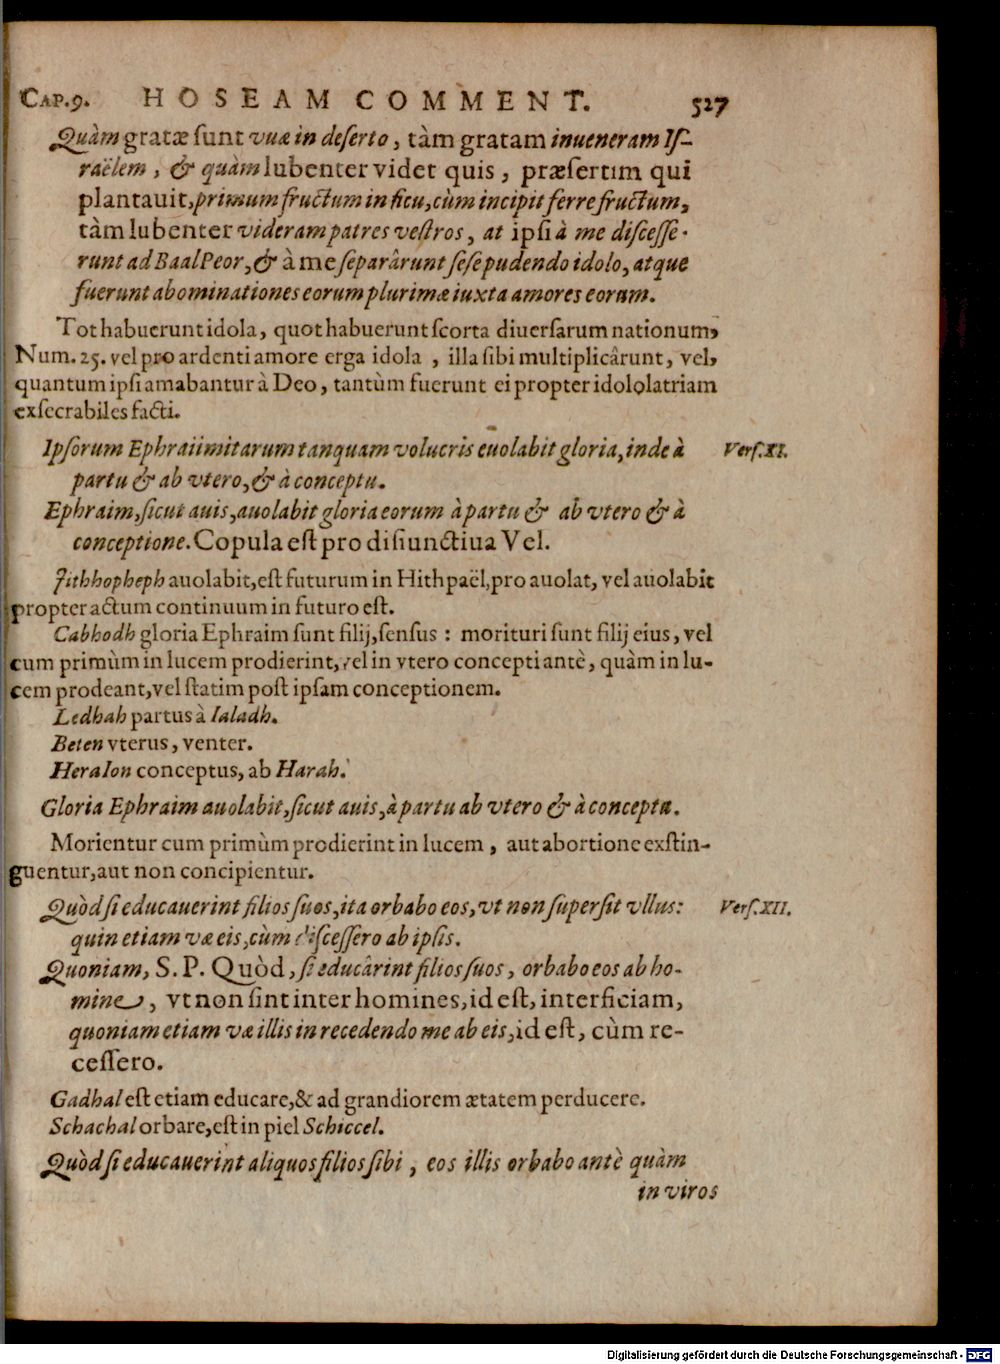 CAP.9. HOSEAM COMMENT. 527
Quàm gratæ sunt vuæ in deserto, tàm gratam inueneram Is-
raëlem, & quàm lubenter videt quis, præsertim qui
plantauit, primum fructum in ficu, cùm incipit ferre fructum,
tàm lubenter videram patres vestros, at ipsi à me discesse-
runt ad Baal Peor, & à me separârunt sese pudendo idolo, atque
fuerunt abominationes eorum plurimæ iuxta amores eorum.
Tot habuerunt idola, quot habuerunt scorta diuersarum nationum,
Num. 25. vel pro ardenti amore erga idola, illa sibi multiplicârunt, vel,
quantum ipsi amabantur à Deo, tantùm fuerunt ei propter idololatriam
exsecrabiles facti.
Ipsorum Ephraiimitarum tanquam volucris euolabit gloria, inde à Vers. XI.
partu & ab vtero, & à conceptu.
Ephraim, sicut auis, auolabit gloria eorum à partu & ab vtero & à
conceptione. Copula est pro disiunctiua Vel.
Jithhopheph auolabit, est futurum in Hithpaël, pro auolat, vel auolabit
propter actum continuum in futuro est.
Cabhodh gloria Ephraim sunt filij, sensus: morituri sunt filij eius, vel
cum primùm in lucem prodierint, vel in vtero concepti antè, quàm in lu-
cem prodeant, vel statim post ipsam conceptionem.
Ledhah partus à Ialadh.
Beten vterus, venter.
Heraion conceptus, ab Harah.
Gloria Ephraim auolabit, sicut auis, à partu ab vtero & à conceptu.
Morientur cum primùm prodierint in lucem, aut abortione exstin-
guentur, aut non concipientur.
Quòd si educauerint filios suos, ita orbabo eos, vt non supersit vllus: Vers. XII.
quin etiam væ eis, cùm discessero ab ipsis.
Quoniam, S. P. Quòd, si educârint filios suos, orbabo eos ab ho-
mine, vt non sint inter homines, id est, interficiam,
quoniam etiam væ illis in recedendo me ab eis, id est, cùm re-
cessero.
Gadhal est etiam educare, & ad grandiorem ætatem perducere.
Schachal orbare, est in piel Schiccel.
Quòd si educauerint aliquos filios sibi, eos illis orbabo antè quàm
in viros
Digitalisierung gefördert durch die Deutsche Forschungsgemeinschaft - DFG